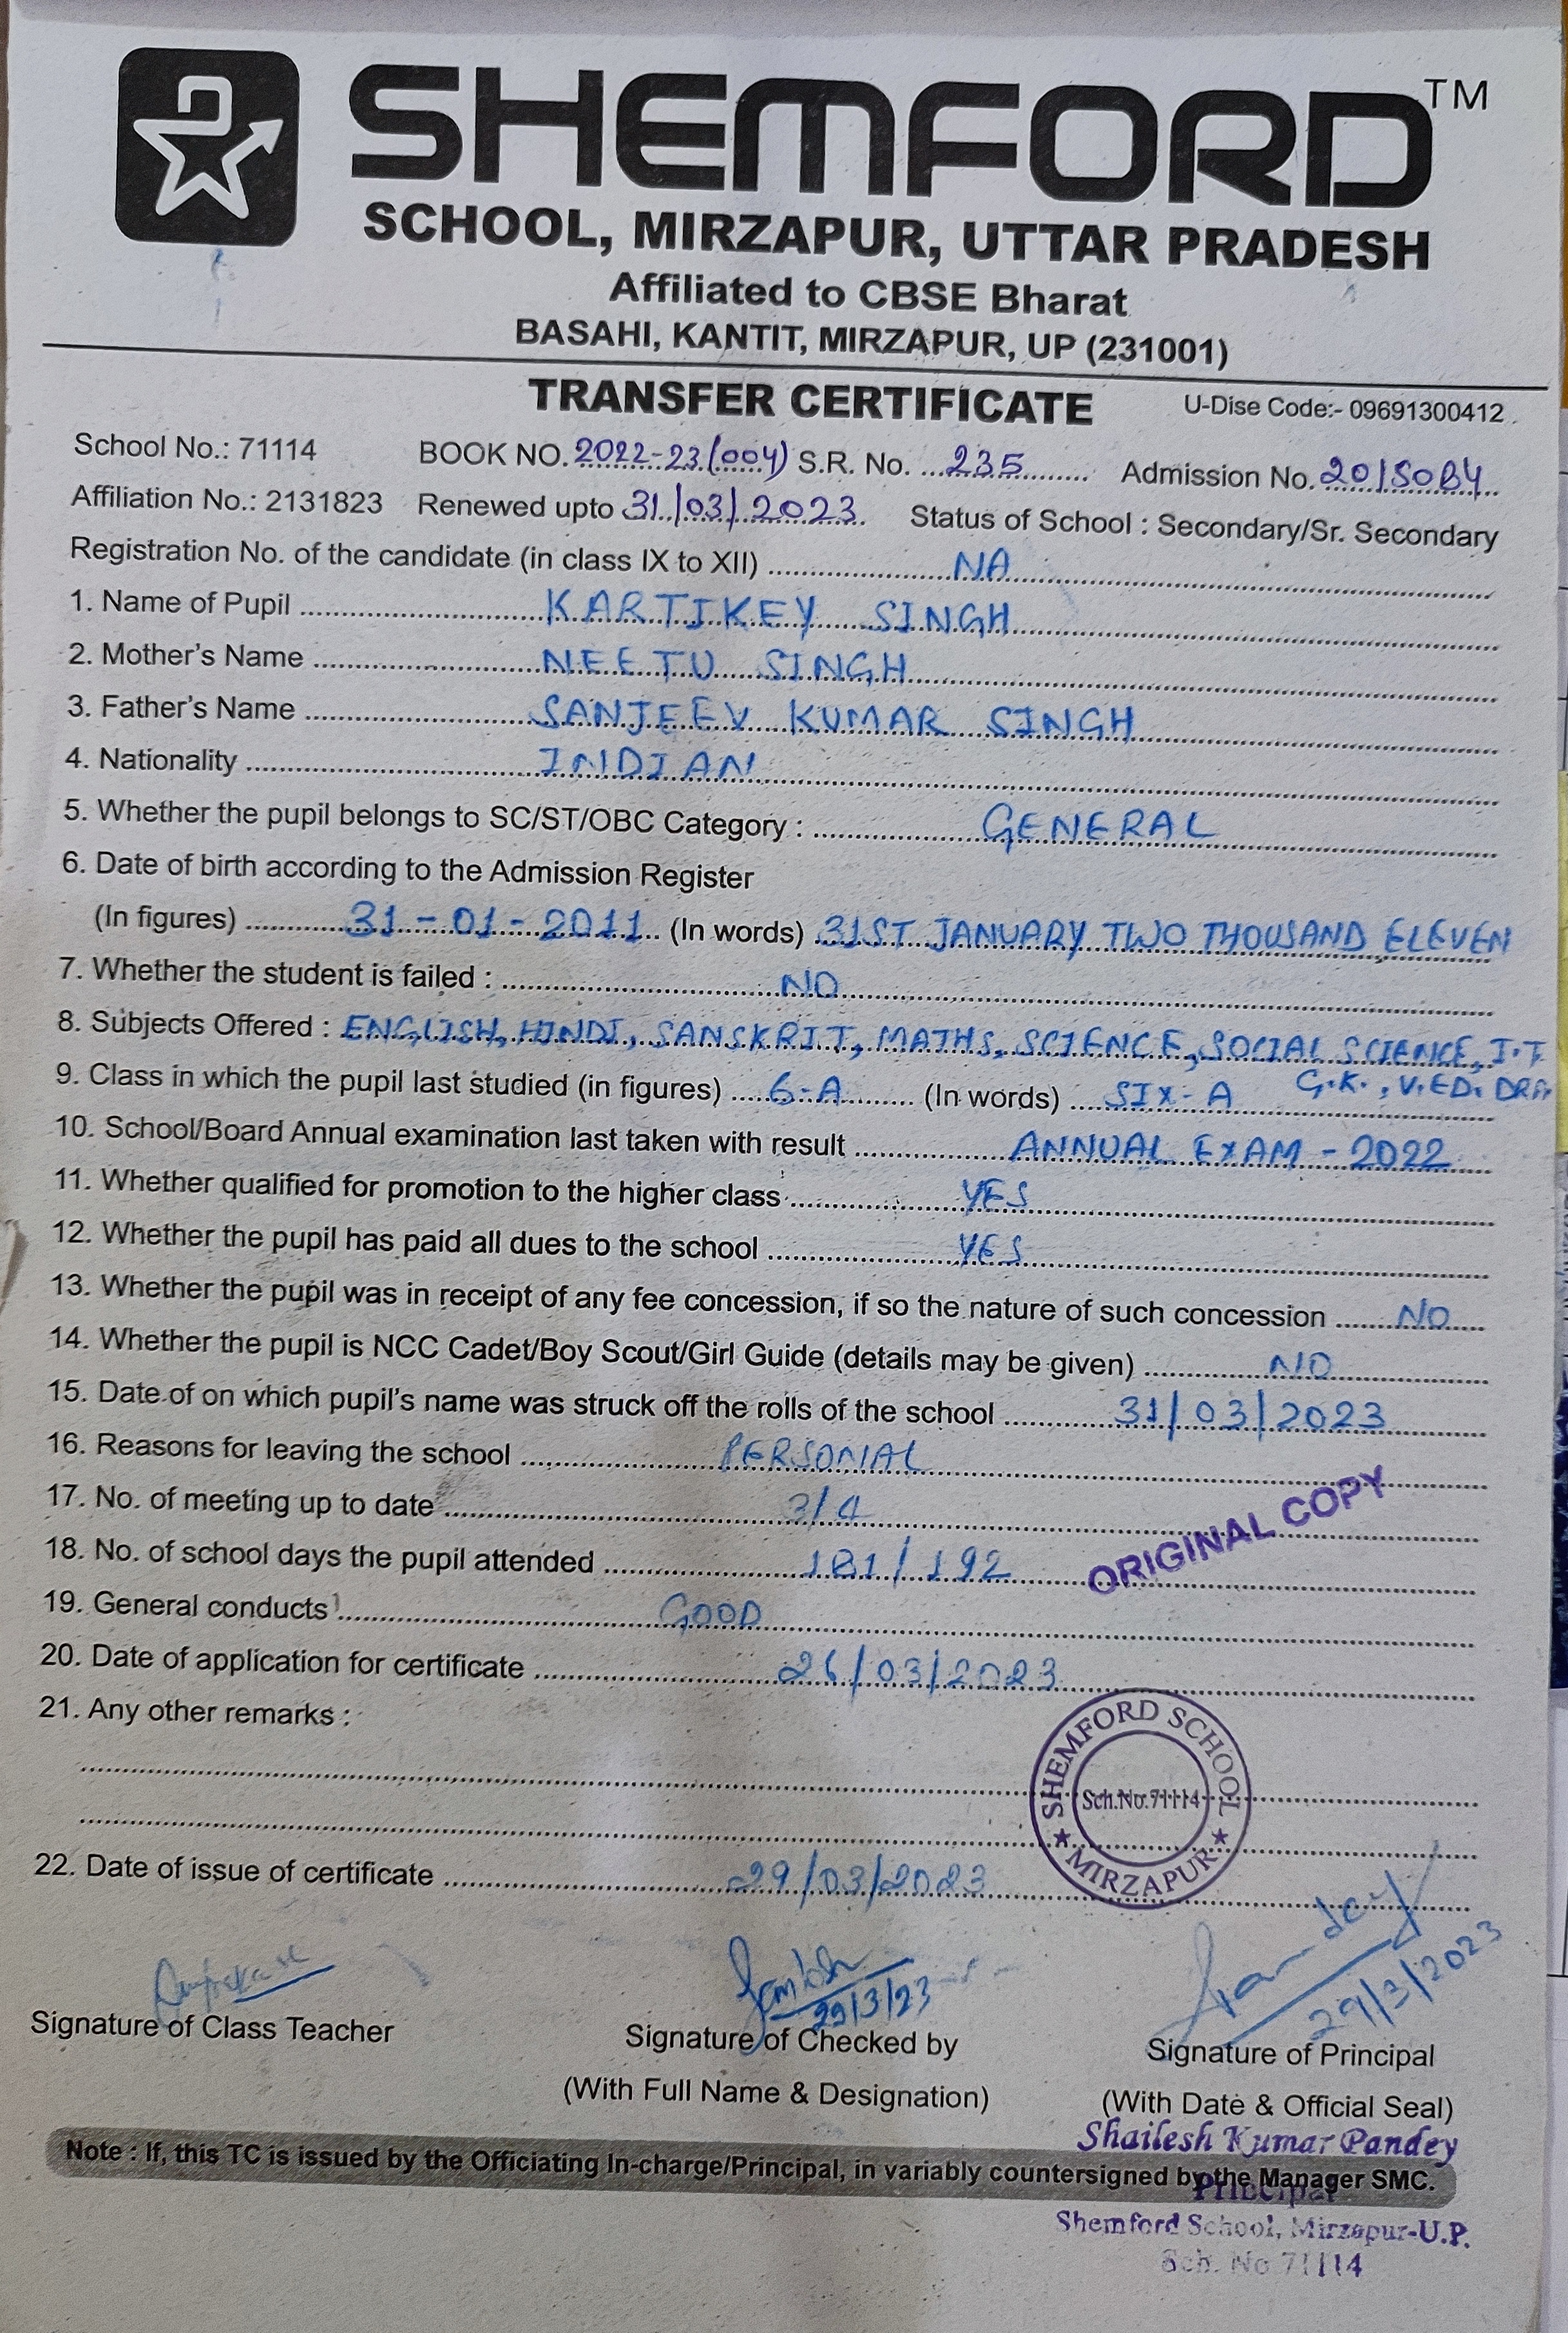 SHEMFORD TM
SCHOOL, MIRZAPUR, UTTAR PRADESH
Affiliated to CBSE Bharat
BASAHI, KANTIT, MIRZAPUR, UP (231001)
TRANSFER CERTIFICATE U-Dise Code:- 09691300412
School No.: 71114 BOOK NO. 2022-23(004) S.R. No. 235 Admission No. 201SOB4
Affiliation No.: 2131823 Renewed upto 31/03/2023 Status of School : Secondary/Sr. Secondary
Registration No. of the candidate (in class IX to XII) NA
1. Name of Pupil KARTIKEY SINGH
2. Mother's Name NEETU SINGH
3. Father's Name SANJEEV KUMAR SINGH
4. Nationality INDIAN
5. Whether the pupil belongs to SC/ST/OBC Category : GENERAL
6. Date of birth according to the Admission Register
(In figures) 31-01-2011 (In words) 31ST JANUARY TWO THOUSAND ELEVEN
7. Whether the student is failed : NO
8. Subjects Offered : ENGLISH, HINDI, SANSKRIT, MATHS, SCIENCE, SOCIAL SCIENCE, I.T
G.K., V.ED. DRA
9. Class in which the pupil last studied (in figures) 6-A (In words) SIX-A
10. School/Board Annual examination last taken with result ANNUAL EXAM - 2022
11. Whether qualified for promotion to the higher class YES
12. Whether the pupil has paid all dues to the school YES
13. Whether the pupil was in receipt of any fee concession, if so the nature of such concession NO
14. Whether the pupil is NCC Cadet/Boy Scout/Girl Guide (details may be given) NO
15. Date of on which pupil's name was struck off the rolls of the school 31/03/2023
16. Reasons for leaving the school PERSONAL
17. No. of meeting up to date 3/4
18. No. of school days the pupil attended 181/192
ORIGINAL COPY
19. General conducts GOOD
20. Date of application for certificate 26/03/2023
21. Any other remarks :
SHEMFORD SCHOOL
Sch.No.71114
★ MIRZAPUR ★
22. Date of issue of certificate 29/03/2023
29/3/23 29/3/2023
Signature of Class Teacher Signature of Checked by Signature of Principal
(With Full Name & Designation) (With Date & Official Seal)
Shailesh Kumar Pandey
Note : If, this TC is issued by the Officiating In-charge/Principal, in variably countersigned by the Manager SMC.
Principal
Shemford School, Mirzapur-U.P.
Sch. No 71114